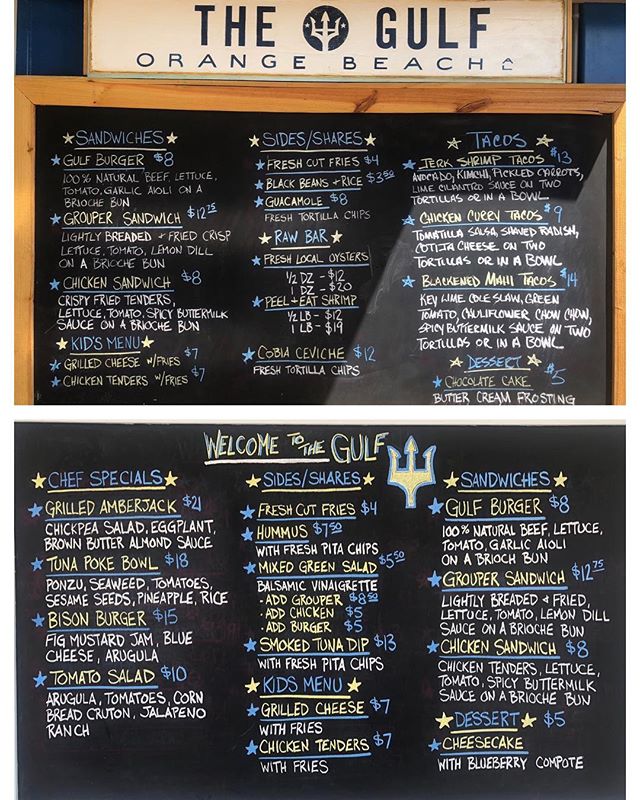 THE GULF
ORANGE BEACH
SANDWICHES
GULF BURGER $8
100% NATURAL BEEF, LETTUCE,
TOMATO, GARLIC AIOLI ON A
BRIOCHE BUN
GROUPER SANDWICH $12.75
LIGHTLY BREADED + FRIED CRISP
LETTUCE, TOMATO, LEMON DILL
ON A BRIOCHE BUN
CHICKEN SANDWICH $8
CRISPY FRIED TENDERS,
LETTUCE, TOMATO, SPICY BUTTERMILK
SAUCE ON A BRIOCHE BUN
KID'S MENU
GRILLED CHEESE W/FRIES $7
CHICKEN TENDERS W/FRIES $7
SIDES/SHARES
FRESH CUT FRIES $4
BLACK BEANS + RICE $3.50
GUACAMOLE $8
FRESH TORTILLA CHIPS
RAW BAR
FRESH LOCAL OYSTERS
1/2 DZ - $12
1 DZ - $20
PEEL + EAT SHRIMP
1/2 LB - $12
1 LB - $19
COBIA CEVICHE $12
FRESH TORTILLA CHIPS
TACOS
JERK SHRIMP TACOS $13
AVOCADO, KIMCHI, PICKLED CARROTS,
LIME CILANTRO SAUCE ON TWO
TORTILLAS OR IN A BOWL
CHICKEN CURRY TACOS $9
TOMATILLA SALSA, SHAVED RADISH,
COTIJA CHEESE ON TWO
TORTILLAS OR IN A BOWL
BLACKENED MAHI TACOS $14
KEY LIME COLE SLAW, GREEN
TOMATO, CAULIFLOWER CHOW CHOW,
SPICY BUTTERMILK SAUCE ON TWO
TORTILLAS OR IN A BOWL
DESSERT
CHOCOLATE CAKE $5
BUTTER CREAM FROSTING
WELCOME TO THE GULF
CHEF SPECIALS
GRILLED AMBERJACK $21
CHICKPEA SALAD, EGGPLANT,
BROWN BUTTER ALMOND SAUCE
TUNA POKE BOWL $18
PONZU, SEAWEED, TOMATOES,
SESAME SEEDS, PINEAPPLE, RICE
BISON BURGER $15
FIG MUSTARD JAM, BLUE
CHEESE, ARUGULA
TOMATO SALAD $10
ARUGULA, TOMATOES, CORN
BREAD CRUTON, JALAPENO
RANCH
SIDES/SHARES
FRESH CUT FRIES $4
HUMMUS $7.50
WITH FRESH PITA CHIPS
MIXED GREEN SALAD $5.50
BALSAMIC VINAIGRETTE
-ADD GROUPER $8.50
-ADD CHICKEN $5
-ADD BURGER $5
SMOKED TUNA DIP $13
WITH FRESH PITA CHIPS
KIDS MENU
GRILLED CHEESE $7
WITH FRIES
CHICKEN TENDERS $7
WITH FRIES
SANDWICHES
GULF BURGER $8
100% NATURAL BEEF, LETTUCE,
TOMATO, GARLIC AIOLI
ON A BRIOCH BUN
GROUPER SANDWICH $12.75
LIGHTLY BREADED + FRIED,
LETTUCE, TOMATO, LEMON DILL
SAUCE ON A BRIOCHE BUN
CHICKEN SANDWICH $8
CHICKEN TENDERS, LETTUCE,
TOMATO, SPICY BUTTERMILK
SAUCE ON A BRIOCHE BUN
DESSERT $5
CHEESECAKE
WITH BLUEBERRY COMPOTE